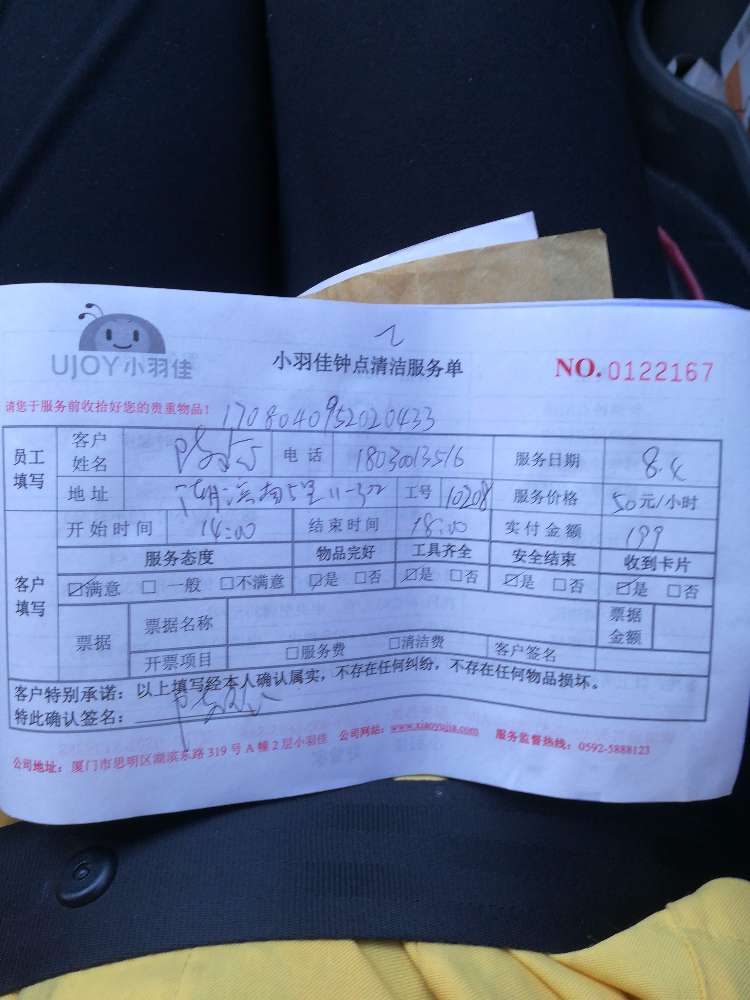 UJOY小羽佳
小羽佳钟点清洁服务单
NO.0122167
请您于服务前收拾好您的贵重物品!
1708040952020433
员工填写 客户姓名 电话 18030013516 服务日期 8.4
地址 工号 10208 服务价格 50元/小时
开始时间 14:00 结束时间 18:00 实付金额 199
客户填写 服务态度 物品完好 工具齐全 安全结束 收到卡片
☑满意 □一般 □不满意 ☑是 □否 ☑是 □否 ☑是 □否 ☑是 □否
票据 票据名称 票据金额
开票项目 □服务费 □清洁费 客户签名
客户特别承诺：以上填写经本人确认属实，不存在任何纠纷，不存在任何物品损坏。
特此确认签名：
公司地址：厦门市思明区湖滨东路319号A幢2层小羽佳 公司网站：www.xiaoyujia.com 服务监督热线：0592-5888123